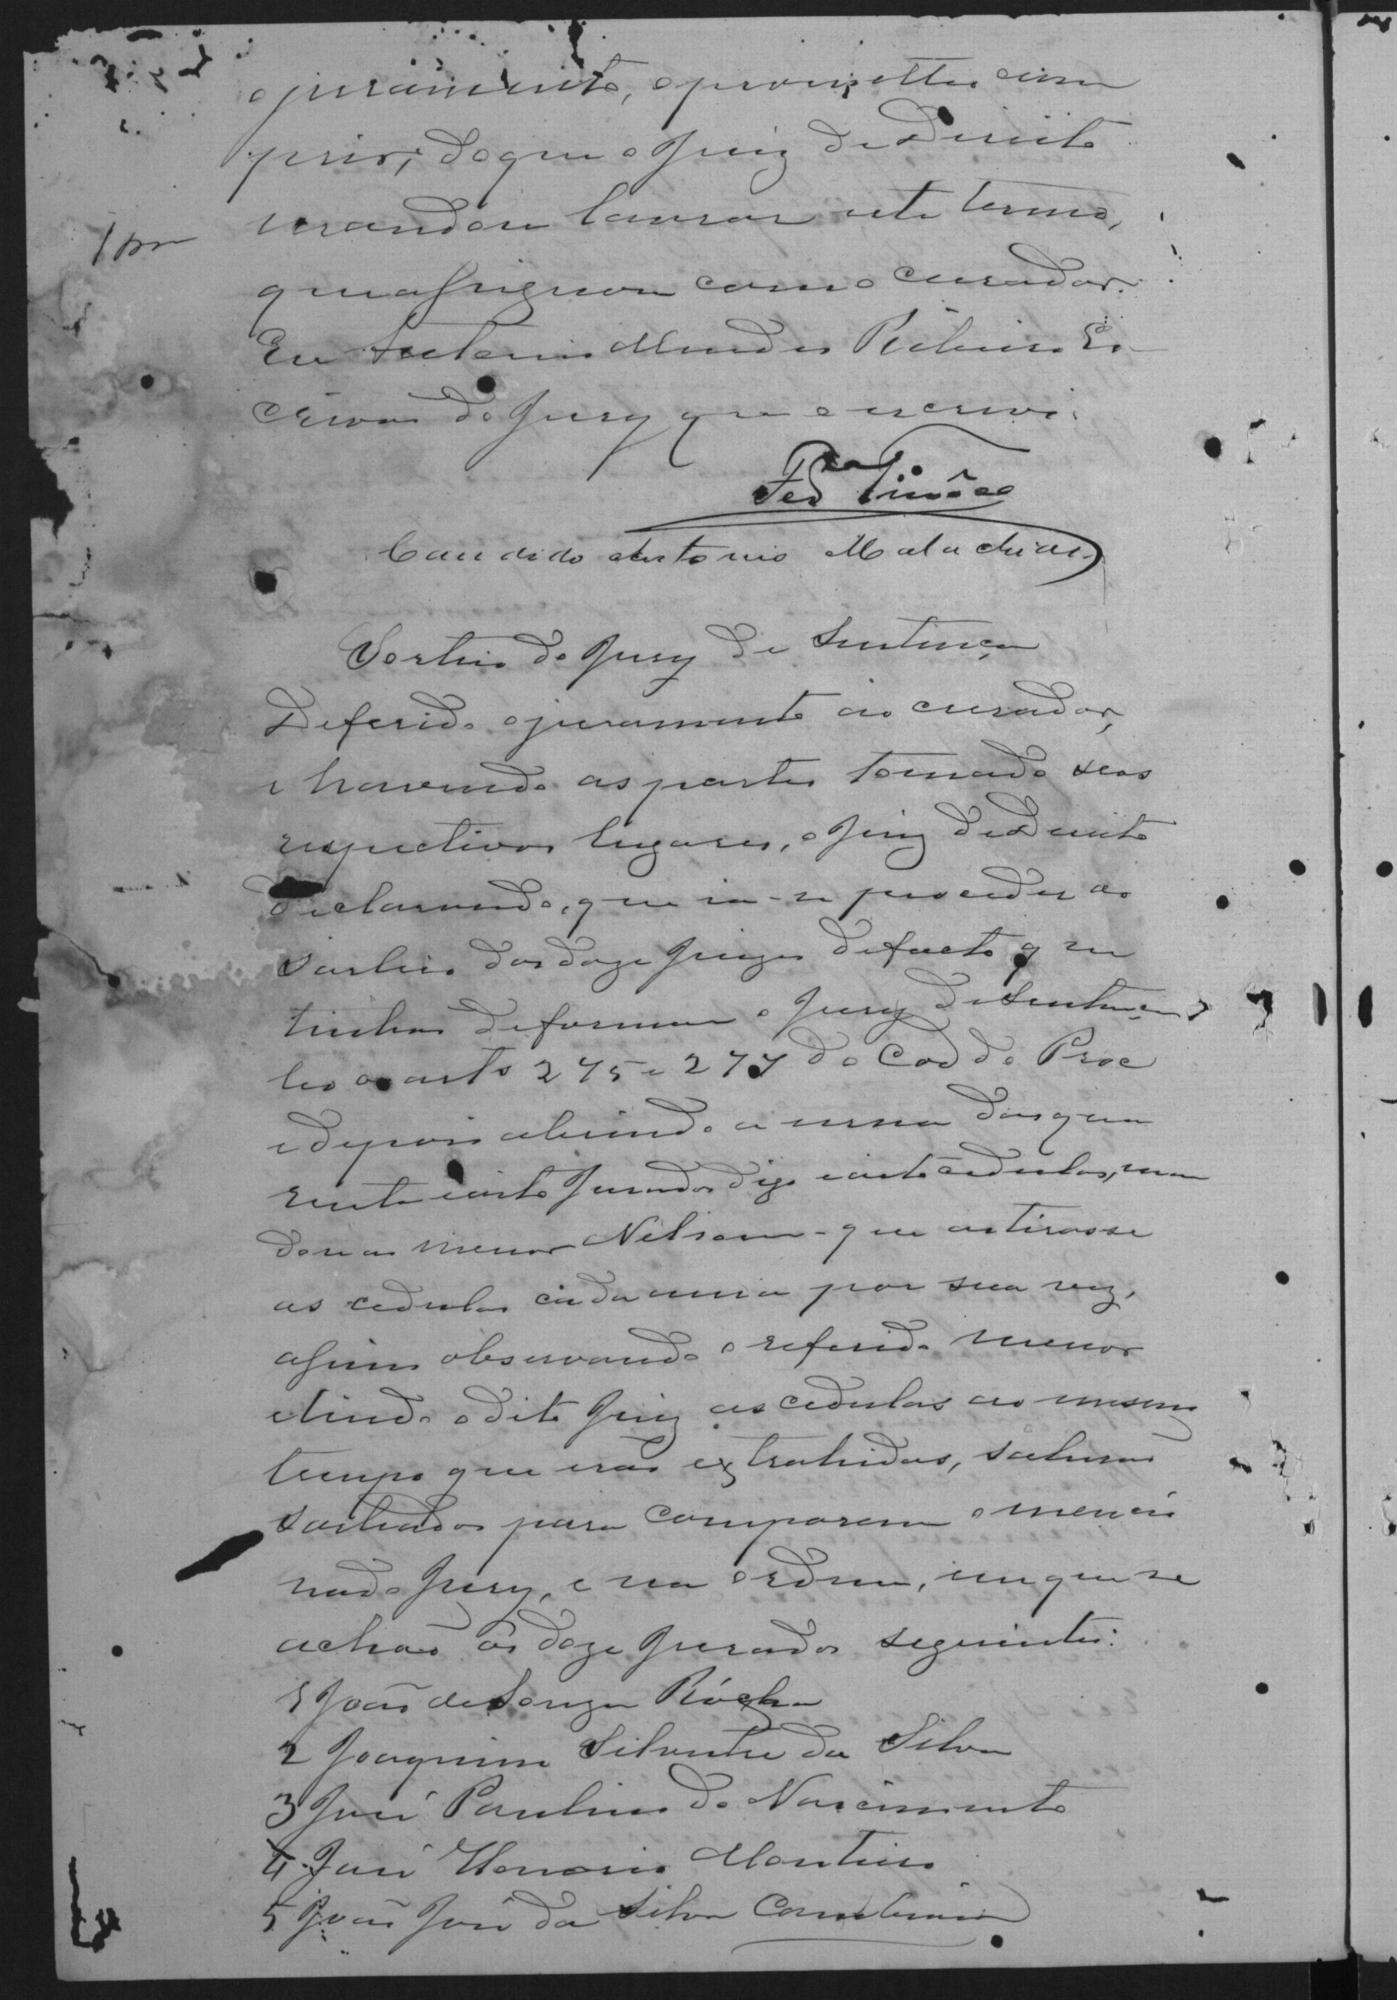 o juramento, e prometteo cum
prir, do que o Juiz de Direito
mandou lavrar este termo,
que assignou com o curador.
Eu Mendes Ribeiro Es
crivão do Jury que o escrevi.
Candido Antonio Malachias
Sorteio do Jury de Sentença
Deferido o juramento ao curador,
e havendo as partes tomado seos
respectivos lugares, o Juiz de Direito
declarando, que ia-se proceder ao
sorteio dos doze Juizes de facto que
tinhão de formar o Jury de Sentença,
leo os arts 275 e 277 do Cod do Proc
e depois abrindo a urna das qua
renta e oito Jurados digo e oito cedulas, man
dou ao menor Nelson que as tirasse
as cedulas cada uma por sua vez,
assim observando o referido menor
e lendo o dito Juiz as cedulas ao mesmo
tempo que erão extrahidas, sahirão
sorteados para comporem o mencio
nado Jury, e na ordem, em que se
achão os doze Jurados seguintes:
1 João de Souza Rocha
2 Joaquim Silvestre da Silva
3 José Paulino do Nascimento
4 José Honorio Monteiro
5 João José da Silva